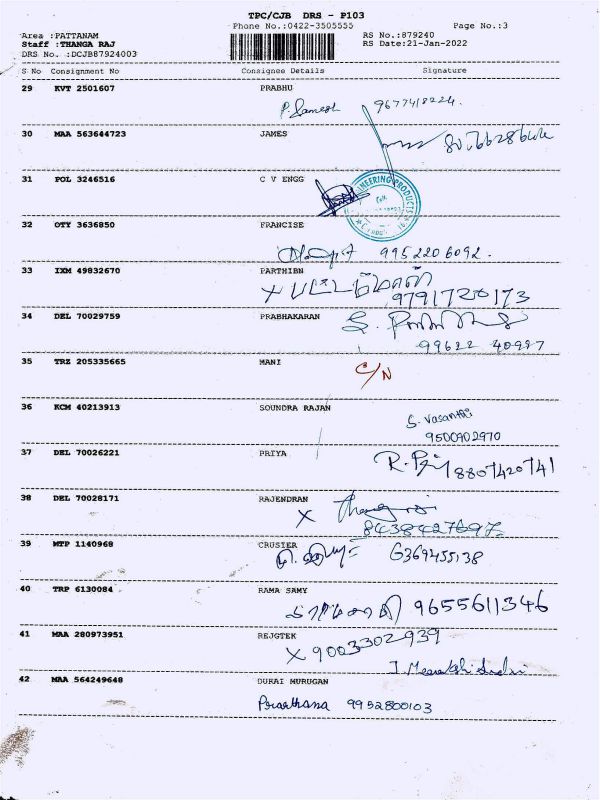 TPC/CJB DRS - P103
Phone No.:0422-3505555 Page No.:3
Area :PATTANAM RS No.:879240
Staff :THANGA RAJ RS Date:21-Jan-2022
DRS No. :DCJB87924003
S No Consignment No Consignee Details Signature
29 KVT 2501607 PRABHU
P. Samesh 9677418224.
30 MAA 563644723 JAMES
31 POL 3246516 C V ENGG
ENGINEERING PRODUCTS
32 OTY 3636850 FRANCISE
9952206092.
33 IXM 49832670 PARTHIBN
X
9791720173
34 DEL 70029759 PRABHAKARAN
S.
99622 40987
35 TRZ 205335665 MANI
C/N
36 KCM 40213913 SOUNDRA RAJAN
S. Vasanthi
9500902970
37 DEL 70026221 PRIYA
R. 8807420741
38 DEL 70028171 RAJENDRAN
X
8438427697
39 MTP 1140968 CRUSTER
6369455138
40 TRP 6130084 RAMA SAMY
9655611346
41 MAA 280973951 REJGTEK
X 9003302939
J. Meenakshi
42 MAA 564249648 DURAI MURUGAN
Prarthana 9952800103